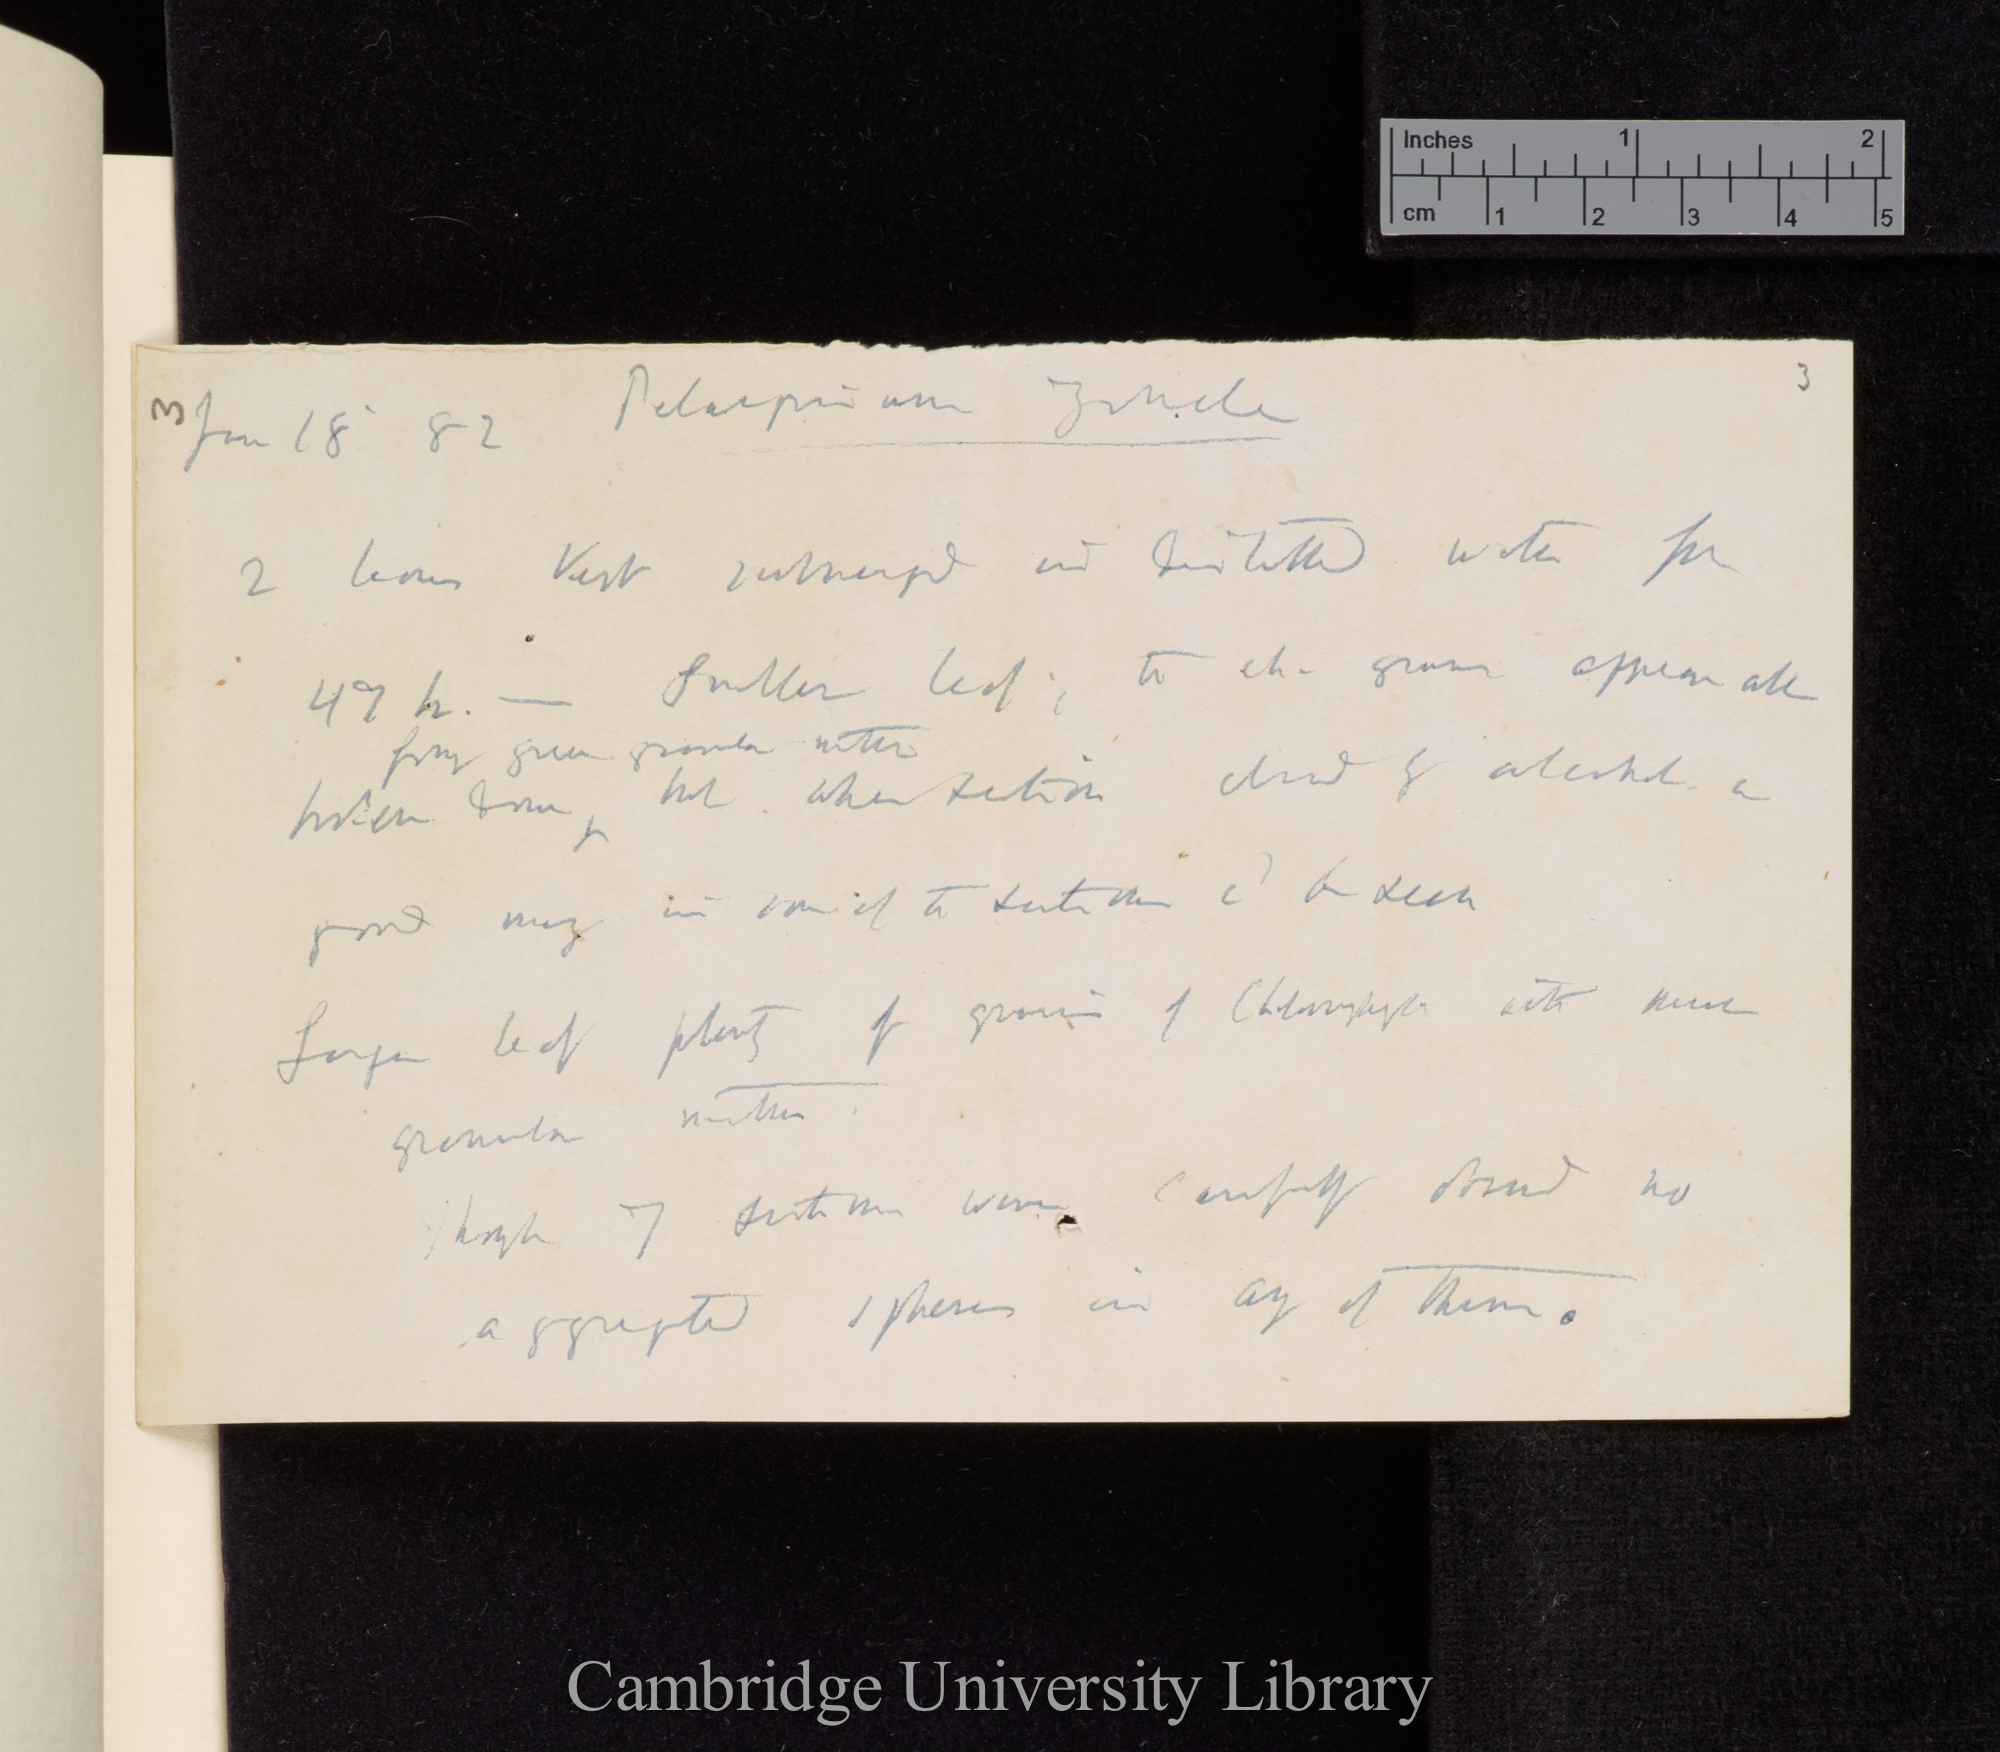 Inches 1 2
cm 1 2 3 4 5
3
3 Jan 18 82 Pelargonium Zonale
2 leaves Kept submerged in distilled water for
47 h. — Smaller leaf, the ch. grains appear all
form green granular matter
broken down, but when section cleared by alcohol a
good many in some of the sections cd be seen
Larger leaf plenty of grains of Chlorophyll with much
granular matter.
Though 7 sections were carefully observed no
aggregated spheres in any of them.
Cambridge University Library